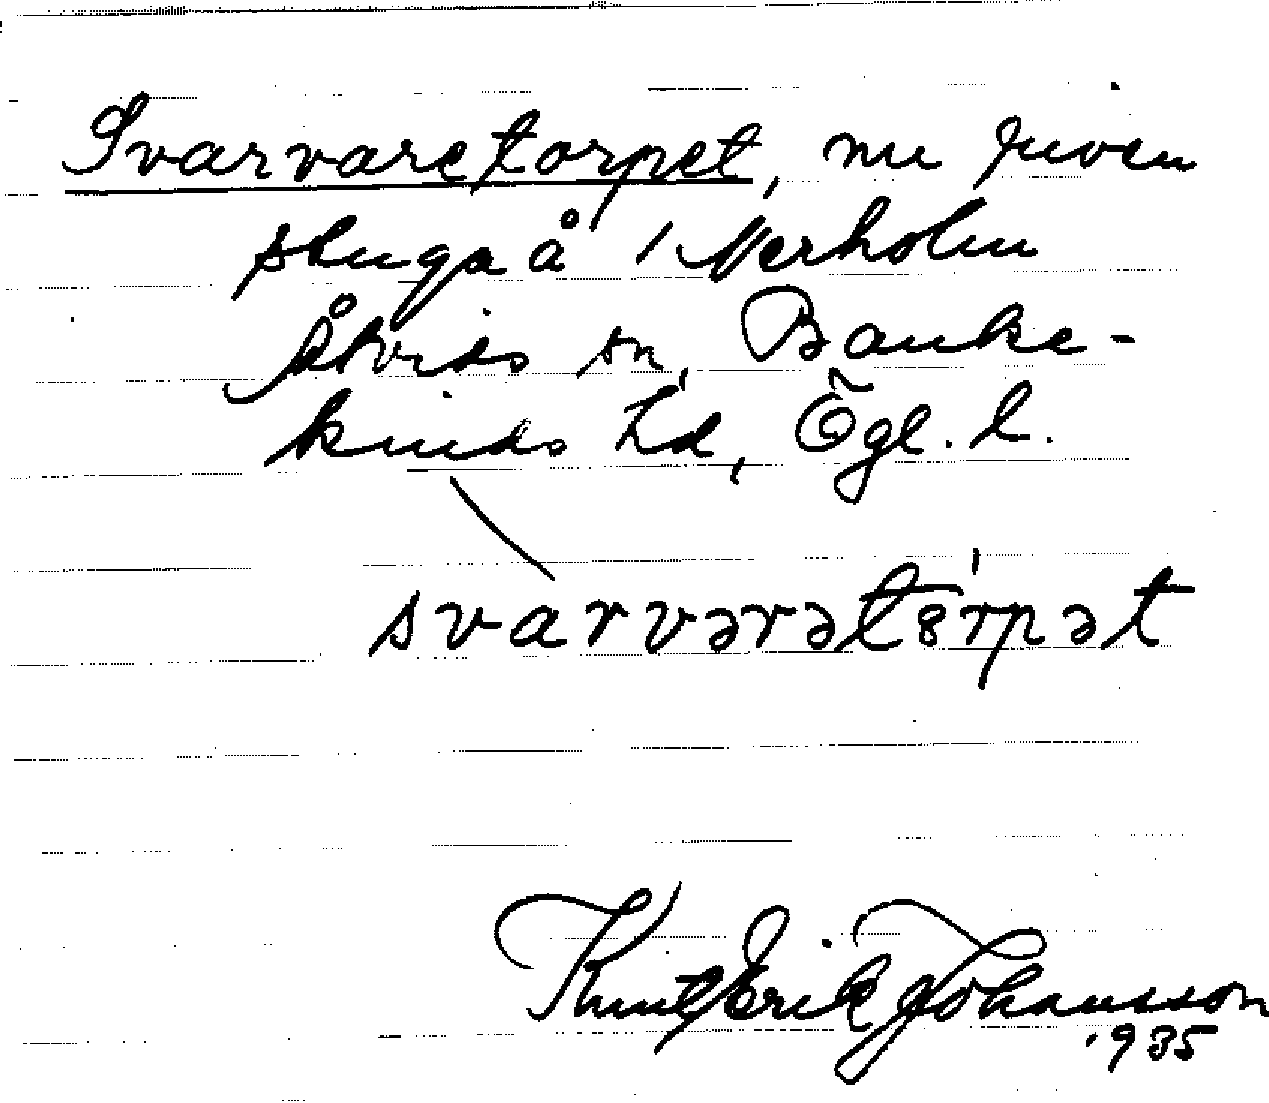 Svarvaretorpet, nu riven
stuga å 1 Nerholm
Åtvids sn, Banke-
kinds hd, Ögl. l.
svarvərətȣrpət
Knut Erik Johansson
1935